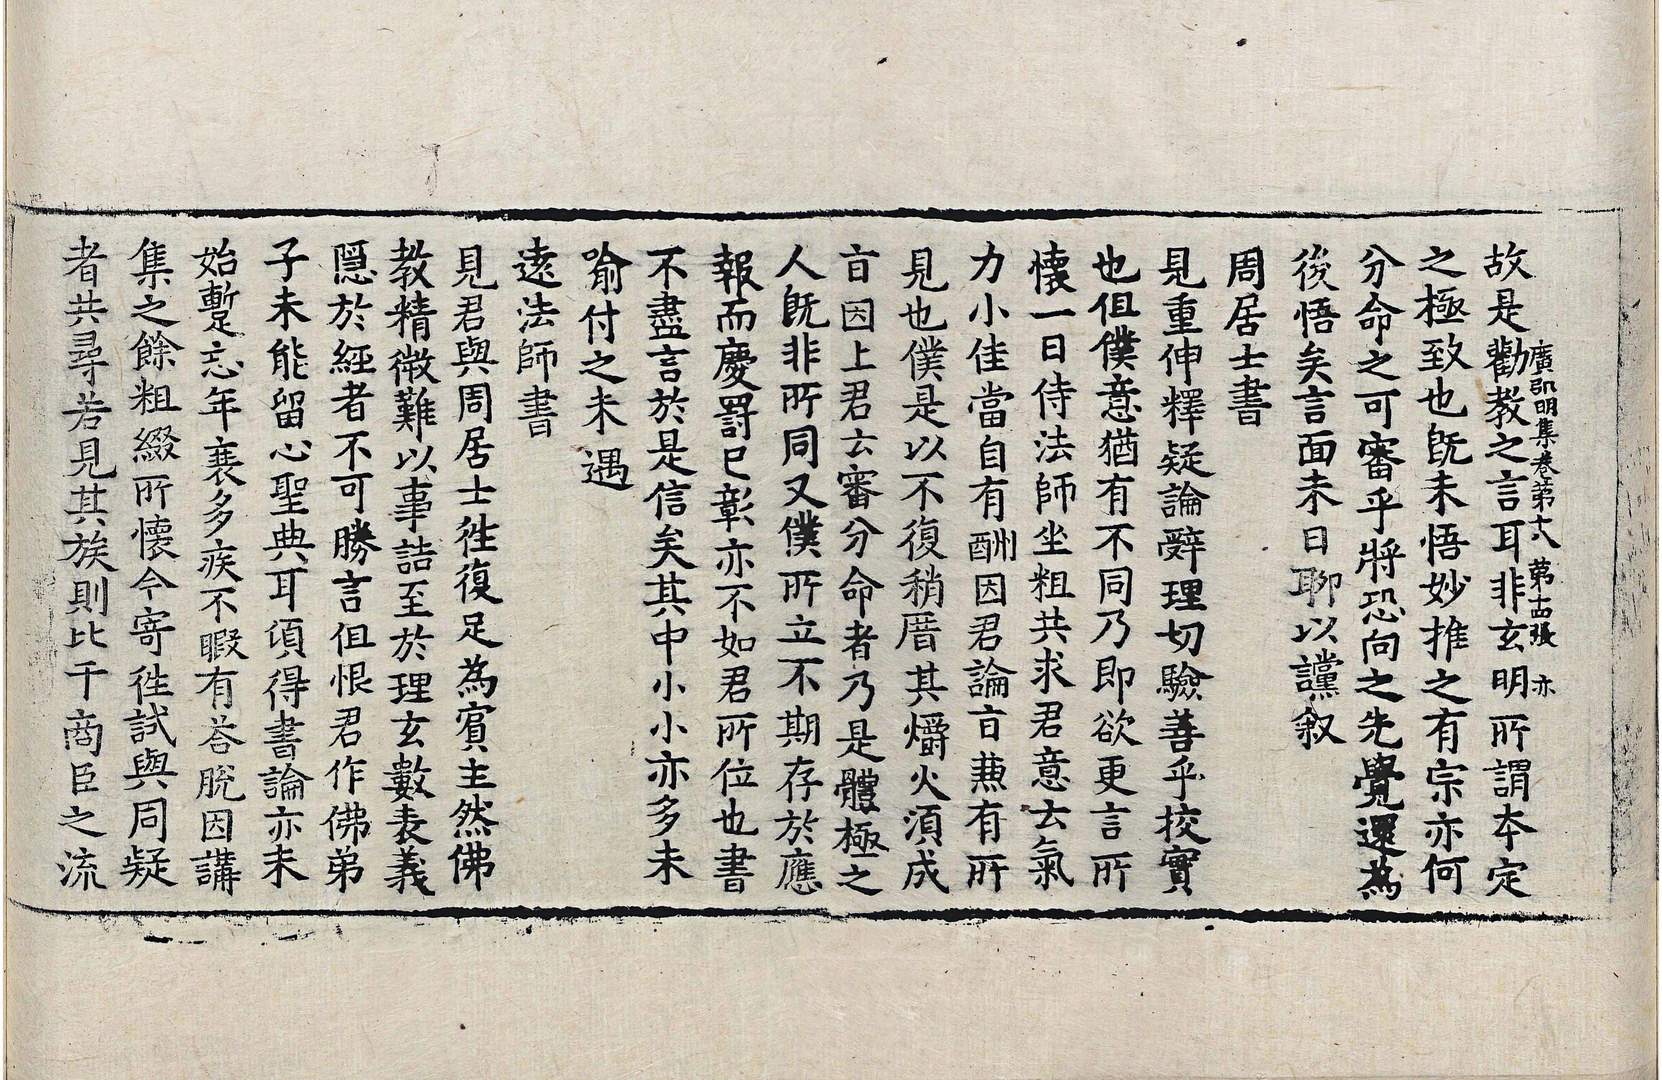 廣弘明集卷第十八 第十四張 亦
故是勸教之言耳非玄明所謂本定
之極致也旣未悟妙推之有宗亦何
分命之可審乎將恐向之先覺還為
後悟矣言面未日聊以讜叙
周居士書
見重伸釋疑論辭理切驗善乎挍實
也但僕意猶有不同乃即欲更言所
懷一日侍法師坐粗共求君意云氣
力小佳當自有酬因君論旨兼有所
見也僕是以不復稍厝其爝火須成
旨因上君云審分命者乃是體極之
人旣非所同又僕所立不期存於應
報而慶罰已彰亦不如君所位也書
不盡言於是信矣其中小小亦多未
喻付之未遇
遠法師書
見君與周居士徃復足為賓主然佛
教精微難以事詰至於理玄數表義
隱於經者不可勝言但恨君作佛弟
子未能留心聖典耳頃得書論亦未
始蹔忘年衰多疾不暇有荅脫因講
集之餘粗綴所懷今寄徃試與同疑
者共尋若見其族則比干商臣之流